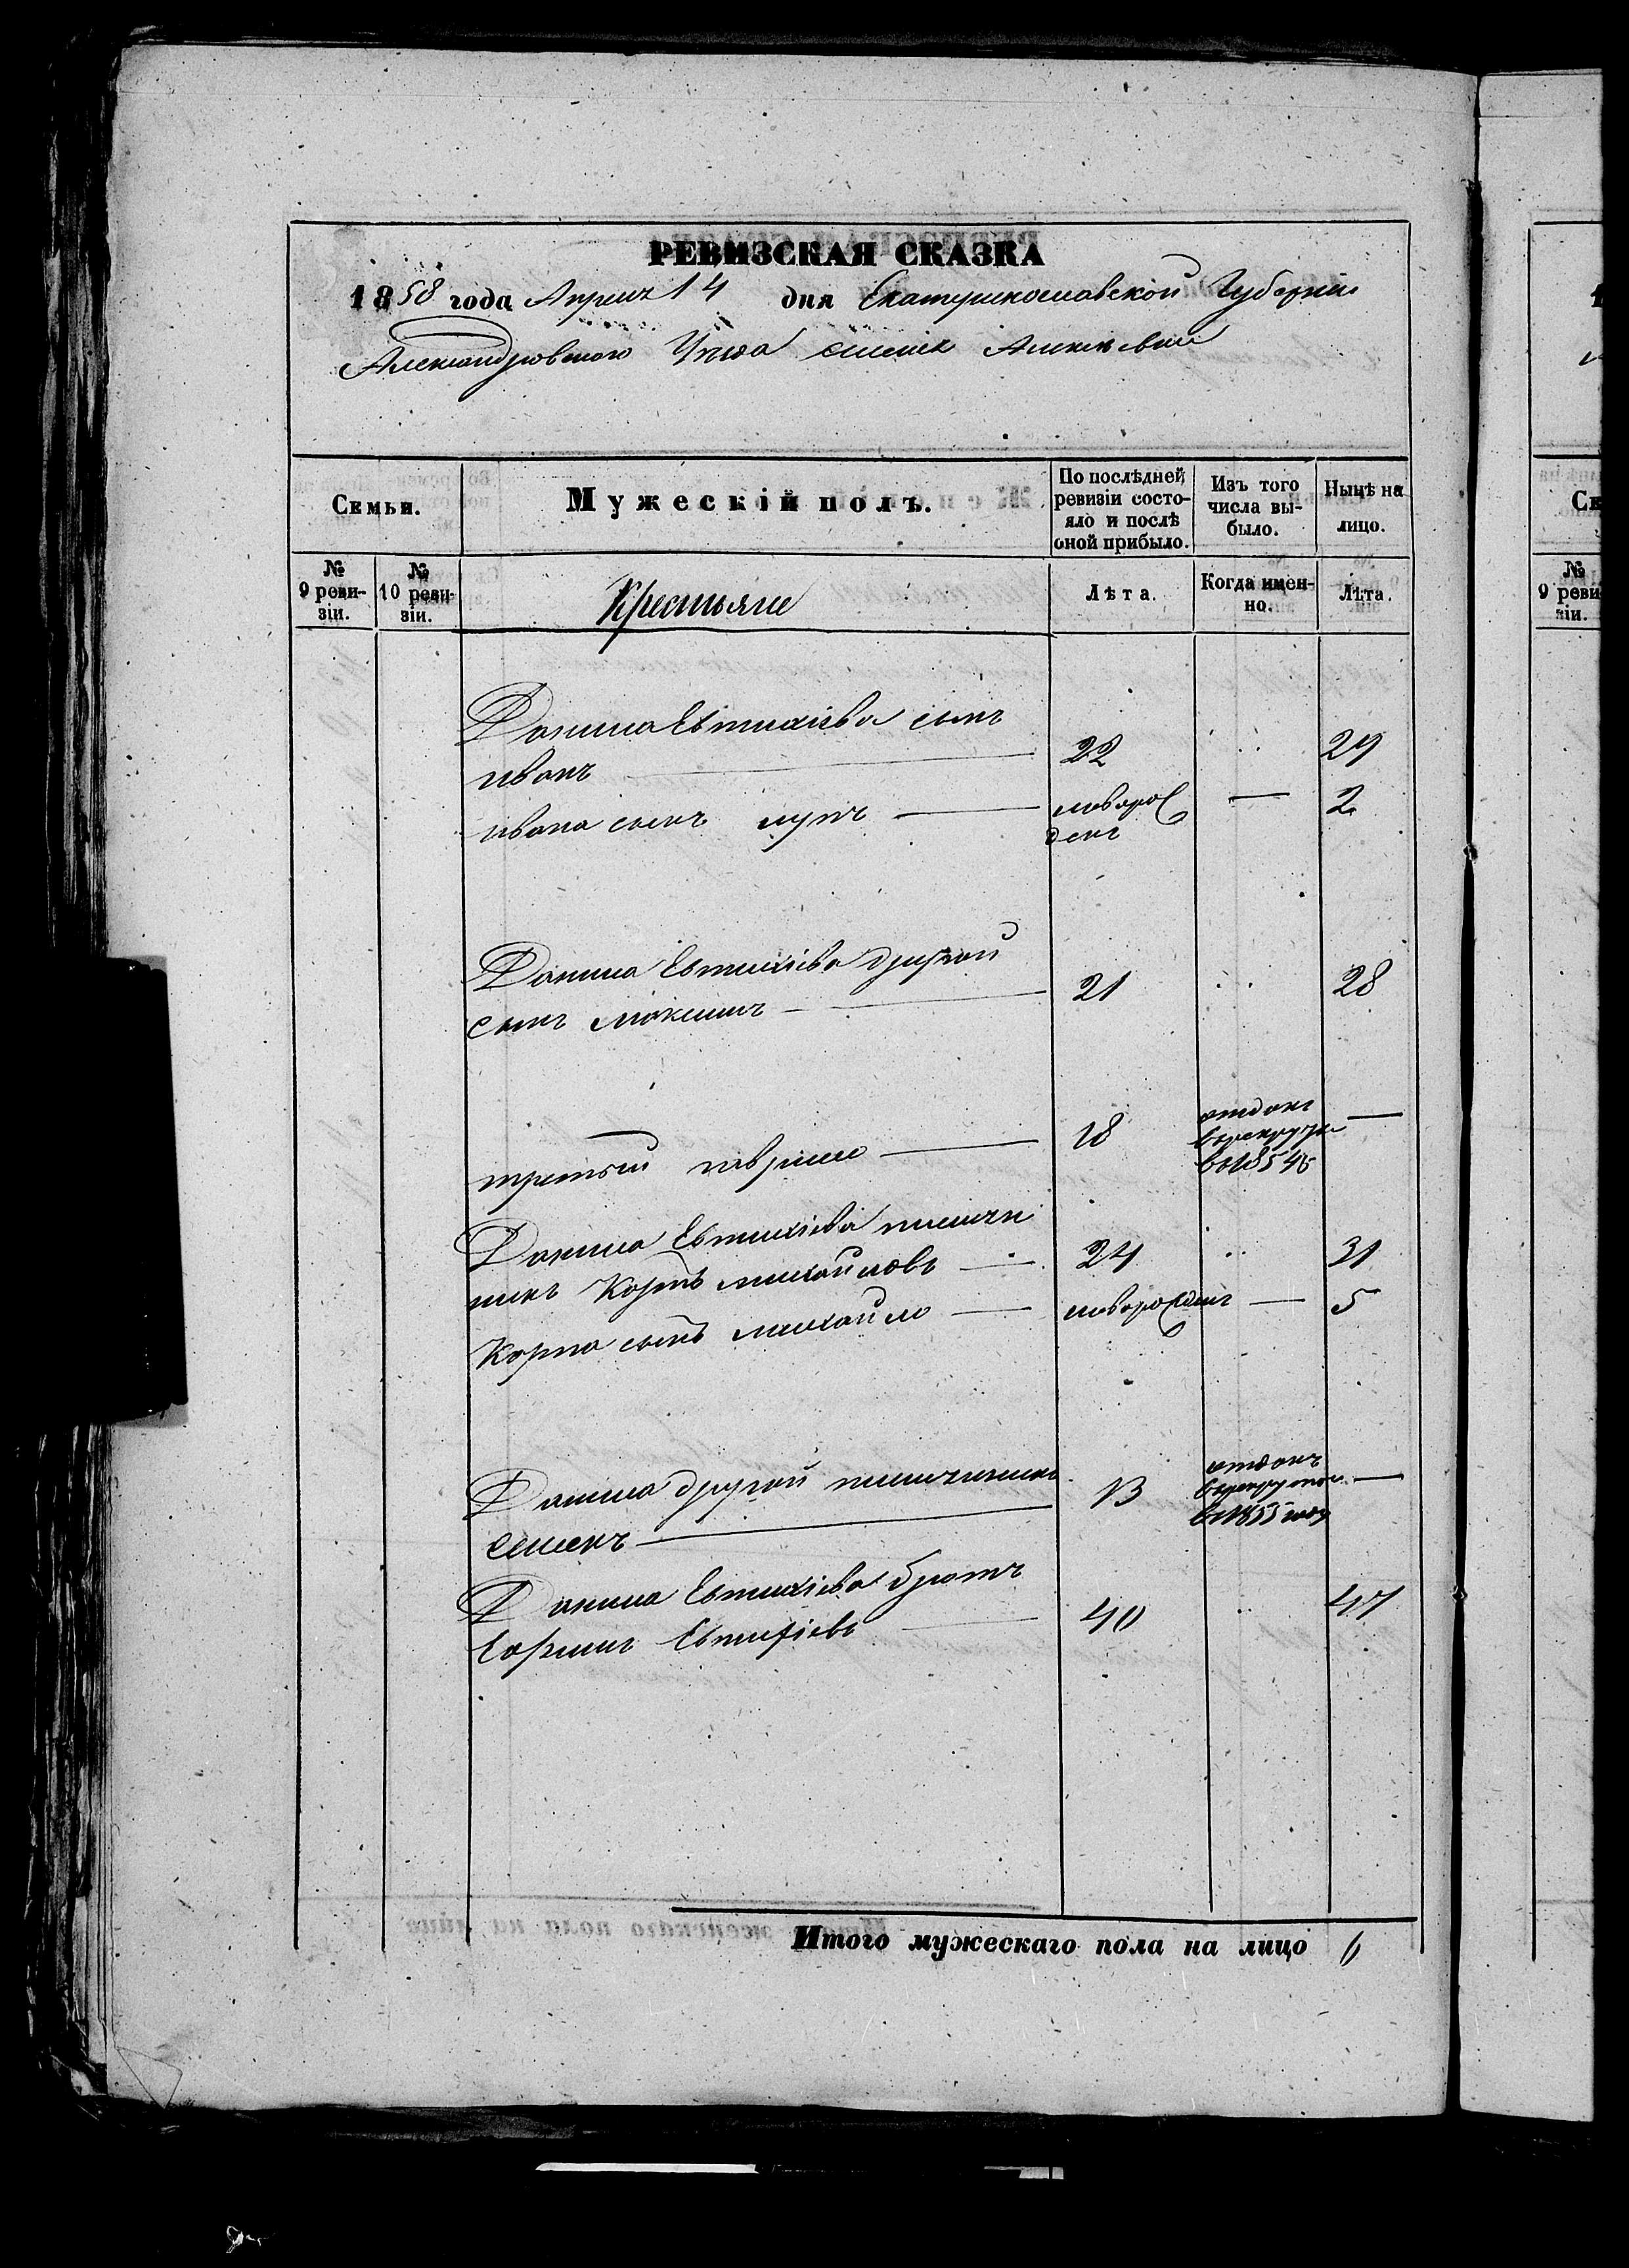 РЕВИЗСКАЯ СКАЗКА
1858 года Апреля 14 дня Екатеринославской Губернии
Александровского Уезда
Семьи.
Мужескій полъ.
По послѣдней ревизіи состо-яло и послѣ оной прибыло.
Изъ того числа вы-было.
Нынѣ на лицо.
№ 9 реви-зіи.
№ 10 реви-зіи.
Крестьяне
Лѣта.
Когда имен-но.
Лѣта.
Данила Евтихіева сынъ
иванъ 22 29
ивана сынъ лупъ новорож 2
денъ
Данила Евтихіева другой
сынъ Максимъ 21 28
третий гаврило 18 отданъ
в рекруты
в 1854
Данила Евтихіева племян
никъ Карпъ михайловъ 24 31
Карпа сынъ михайло новорожденъ 5
Данила другой племянникъ 13 отданъ
семенъ в рекруты
в 1855 году
Данила Евтихіева братъ
Евтихіевъ 40 47
Итого мужескаго пола на лицо 6
№ 9 реви зіи.